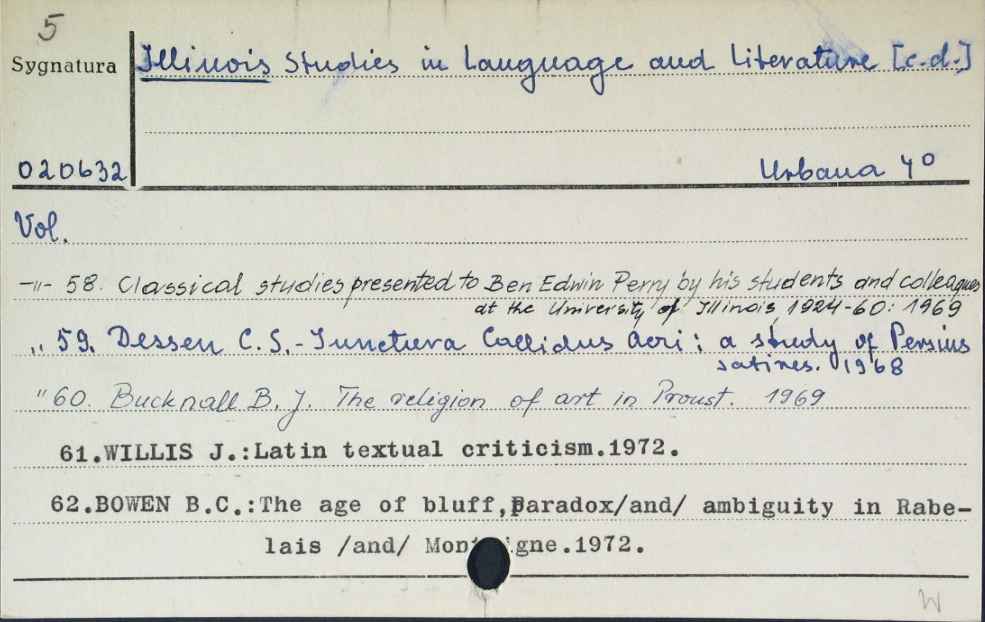 5
Sygnatura
Illinois Studies in Language and Literature [c.d.]
020632
Urbana 4°
Vol.
-"- 58. Classical studies presented to Ben Edwin Perry by his students and colleagues
at the University of Illinois, 1924-60: 1969
" 59. Dessen C.S.- Iunctura Callidus Acri: a study of Persius
satires. 1968
" 60. Bucknall B.J. The religion of art in Proust. 1969
61.WILLIS J.:Latin textual criticism.1972.
62.BOWEN B.C.:The age of bluff,paradox/and/ ambiguity in Rabe-
lais /and/ Mon gne.1972.
W